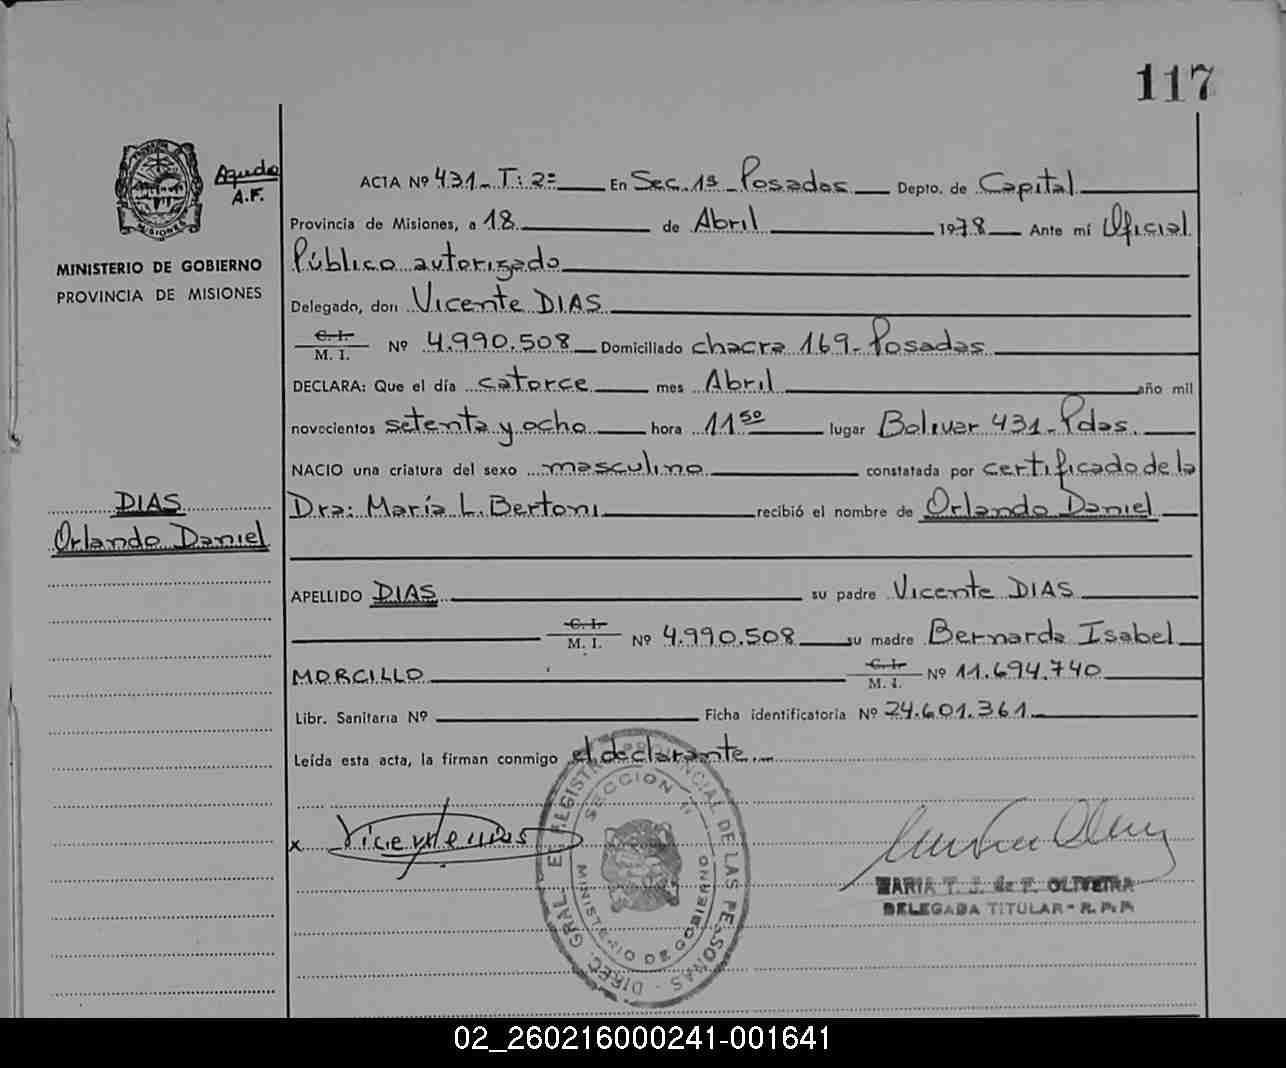 117
Aguda
A.F.
MISIONES
MINISTERIO DE GOBIERNO
PROVINCIA DE MISIONES
DIAS
Orlando Daniel
ACTA Nº 431_ T: 2º En Sec. 1ª _ Posadas Depto. de Capital
Provincia de Misiones, a 18 de Abril 1978 Ante mí Oficial
Público autorizado
Delegado, don Vicente DIAS
C. I.
M. I. Nº 4.990.508 Domiciliado chacra 169_ Posadas
DECLARA: Que el día catorce mes Abril año mil
novecientos setenta y ocho hora 11 50 lugar Bolivar 431_ Pdas.
NACIO una criatura del sexo masculino constatada por certificado de la
Dra: María L. Bertoni recibió el nombre de Orlando Daniel
APELLIDO DIAS su padre Vicente DIAS
C. I.
M. I. Nº 4.990.508 su madre Bernarda Isabel
MORCILLO C. I.
M. I. Nº 11.694.740
Libr. Sanitaria Nº Ficha identificatoria Nº 24.601.361
Leída esta acta, la firman conmigo el declarante
x Vicente Dias
DIREC. GRAL. EL REGISTRO PROVINCIAL DE LAS PERSONAS
SECCION
MINISTERIO DE GOBIERNO
MARIA T. J. de F. OLIVEIRA
DELEGADA TITULAR - R. P. P.
02_260216000241-001641